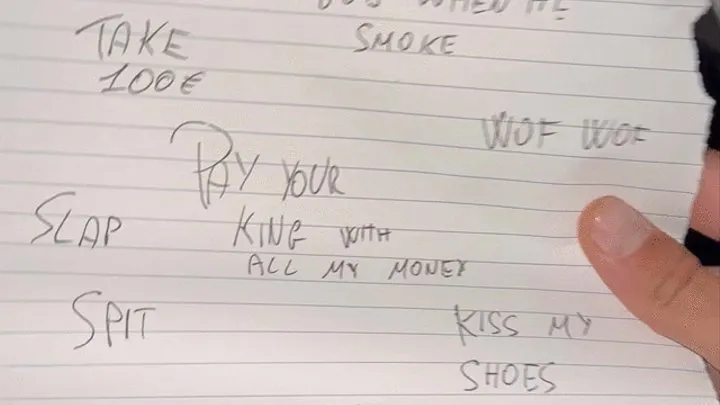 WHEN HE
TAKE
100€
SMOKE
WOF WOF
PAY YOUR
KING WITH
ALL MY MONEY
SLAP
SPIT
KISS MY
SHOES